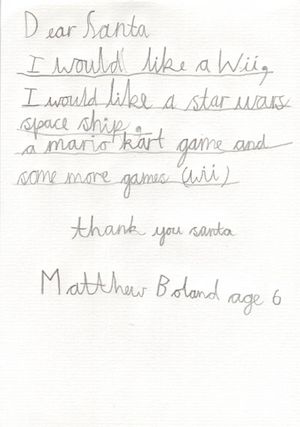 Dear Santa
I would like a Wii,
I would like a star wars
space ship.
a mario kart game and
some more games (wii)
thank you santa
Matthew Boland age 6